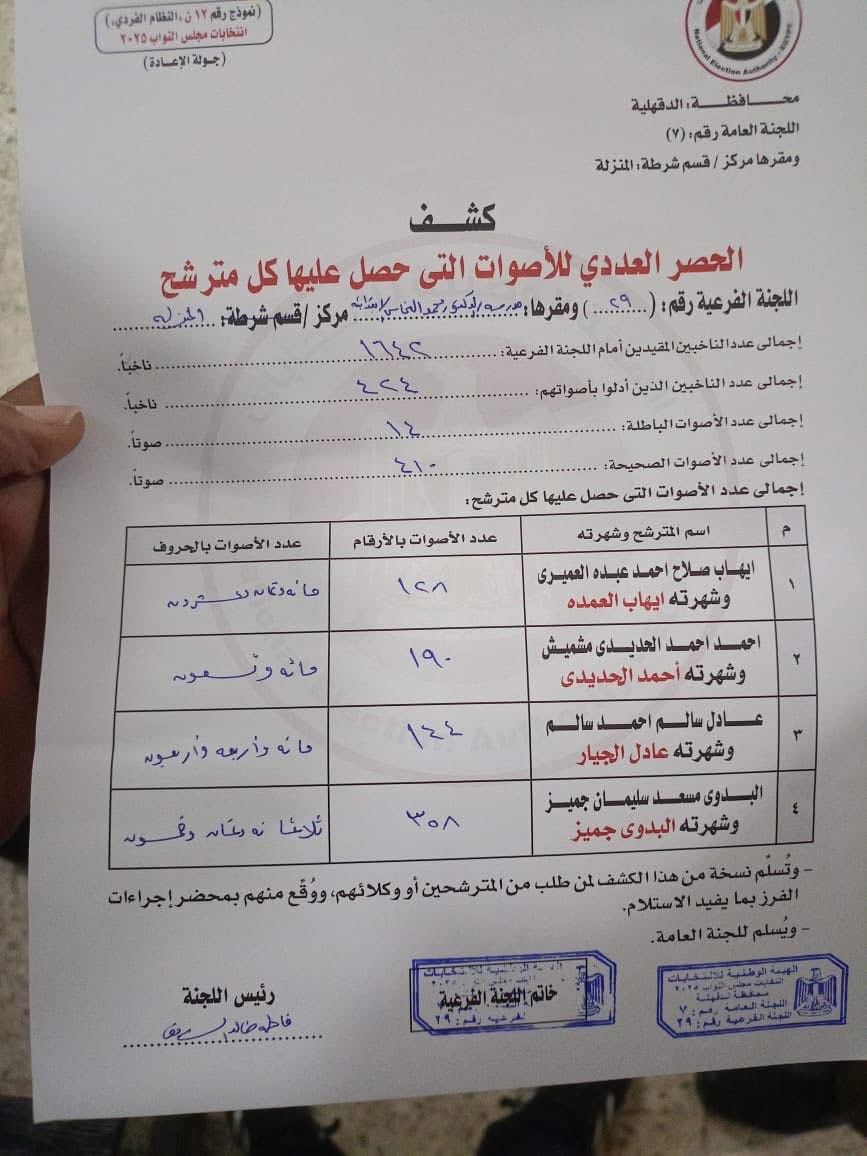 (نموذج رقم ١٢ ن، النظام الفردي،)
انتخابات مجلس النواب ٢٠٢٥
(جولة الإعادة)
National Election Authority - EGYPT
محـــافظـــة: الدقهلية
اللجنة العامة رقم: (٧)
ومقرها مركز / قسم شرطة: المنزلة
كشـــف
الحصر العددي للأصوات التى حصل عليها كل مترشح
اللجنة الفرعية رقم: (٢٩) ومقرها: مدرسه محمد النحاس مركز / قسم شرطة: المنزله
إجمالى عدد الناخبين المقيدين أمام اللجنة الفرعية: ١٦٤٢ ناخباً.
إجمالى عدد الناخبين الذين أدلوا بأصواتهم: ٤٢٤ ناخباً.
إجمالى عدد الأصوات الباطلة: ١٤ صوتاً.
إجمالى عدد الأصوات الصحيحة: ٤١٠ صوتاً.
إجمالى عدد الأصوات التى حصل عليها كل مترشح:
م اسم المترشح وشهرته عدد الأصوات بالأرقام عدد الأصوات بالحروف
١ ايهاب صلاح احمد عبده العميرى ١٢٨ مائه وثمان وعشرون
وشهرته ايهاب العمده
٢ احمد احمد الحديدى مشميش ١٩٠ مائه وتسعون
وشهرته أحمد الحديدى
٣ عـــادل سالـــم احمـــد سالـــم ١٤٤ مائه وأربعه وأربعون
وشهرته عادل الجيار
٤ البـــدوى مسعـــد سليمـــان جميـــز ٣٥٨ ثلاثمائه وثمان وخمسون
وشهرته البدوى جميز
- وتُسلّم نسخة من هذا الكشف لمن طلب من المترشحين أو وكلائهم، ووُقّع منهم بمحضر إجراءات
الفرز بما يفيد الاستلام.
- ويُسلم للجنة العامة.
الهيئة الوطنية للانتخابات
انتخابات مجلس النواب ٢٠٢٥
محافظة الدقهلية
اللجنة العامة رقم: ٧
اللجنة الفرعية رقم: ٢٩
خاتم اللجنة الفرعية
رئيس اللجنة
فاطمه خالد